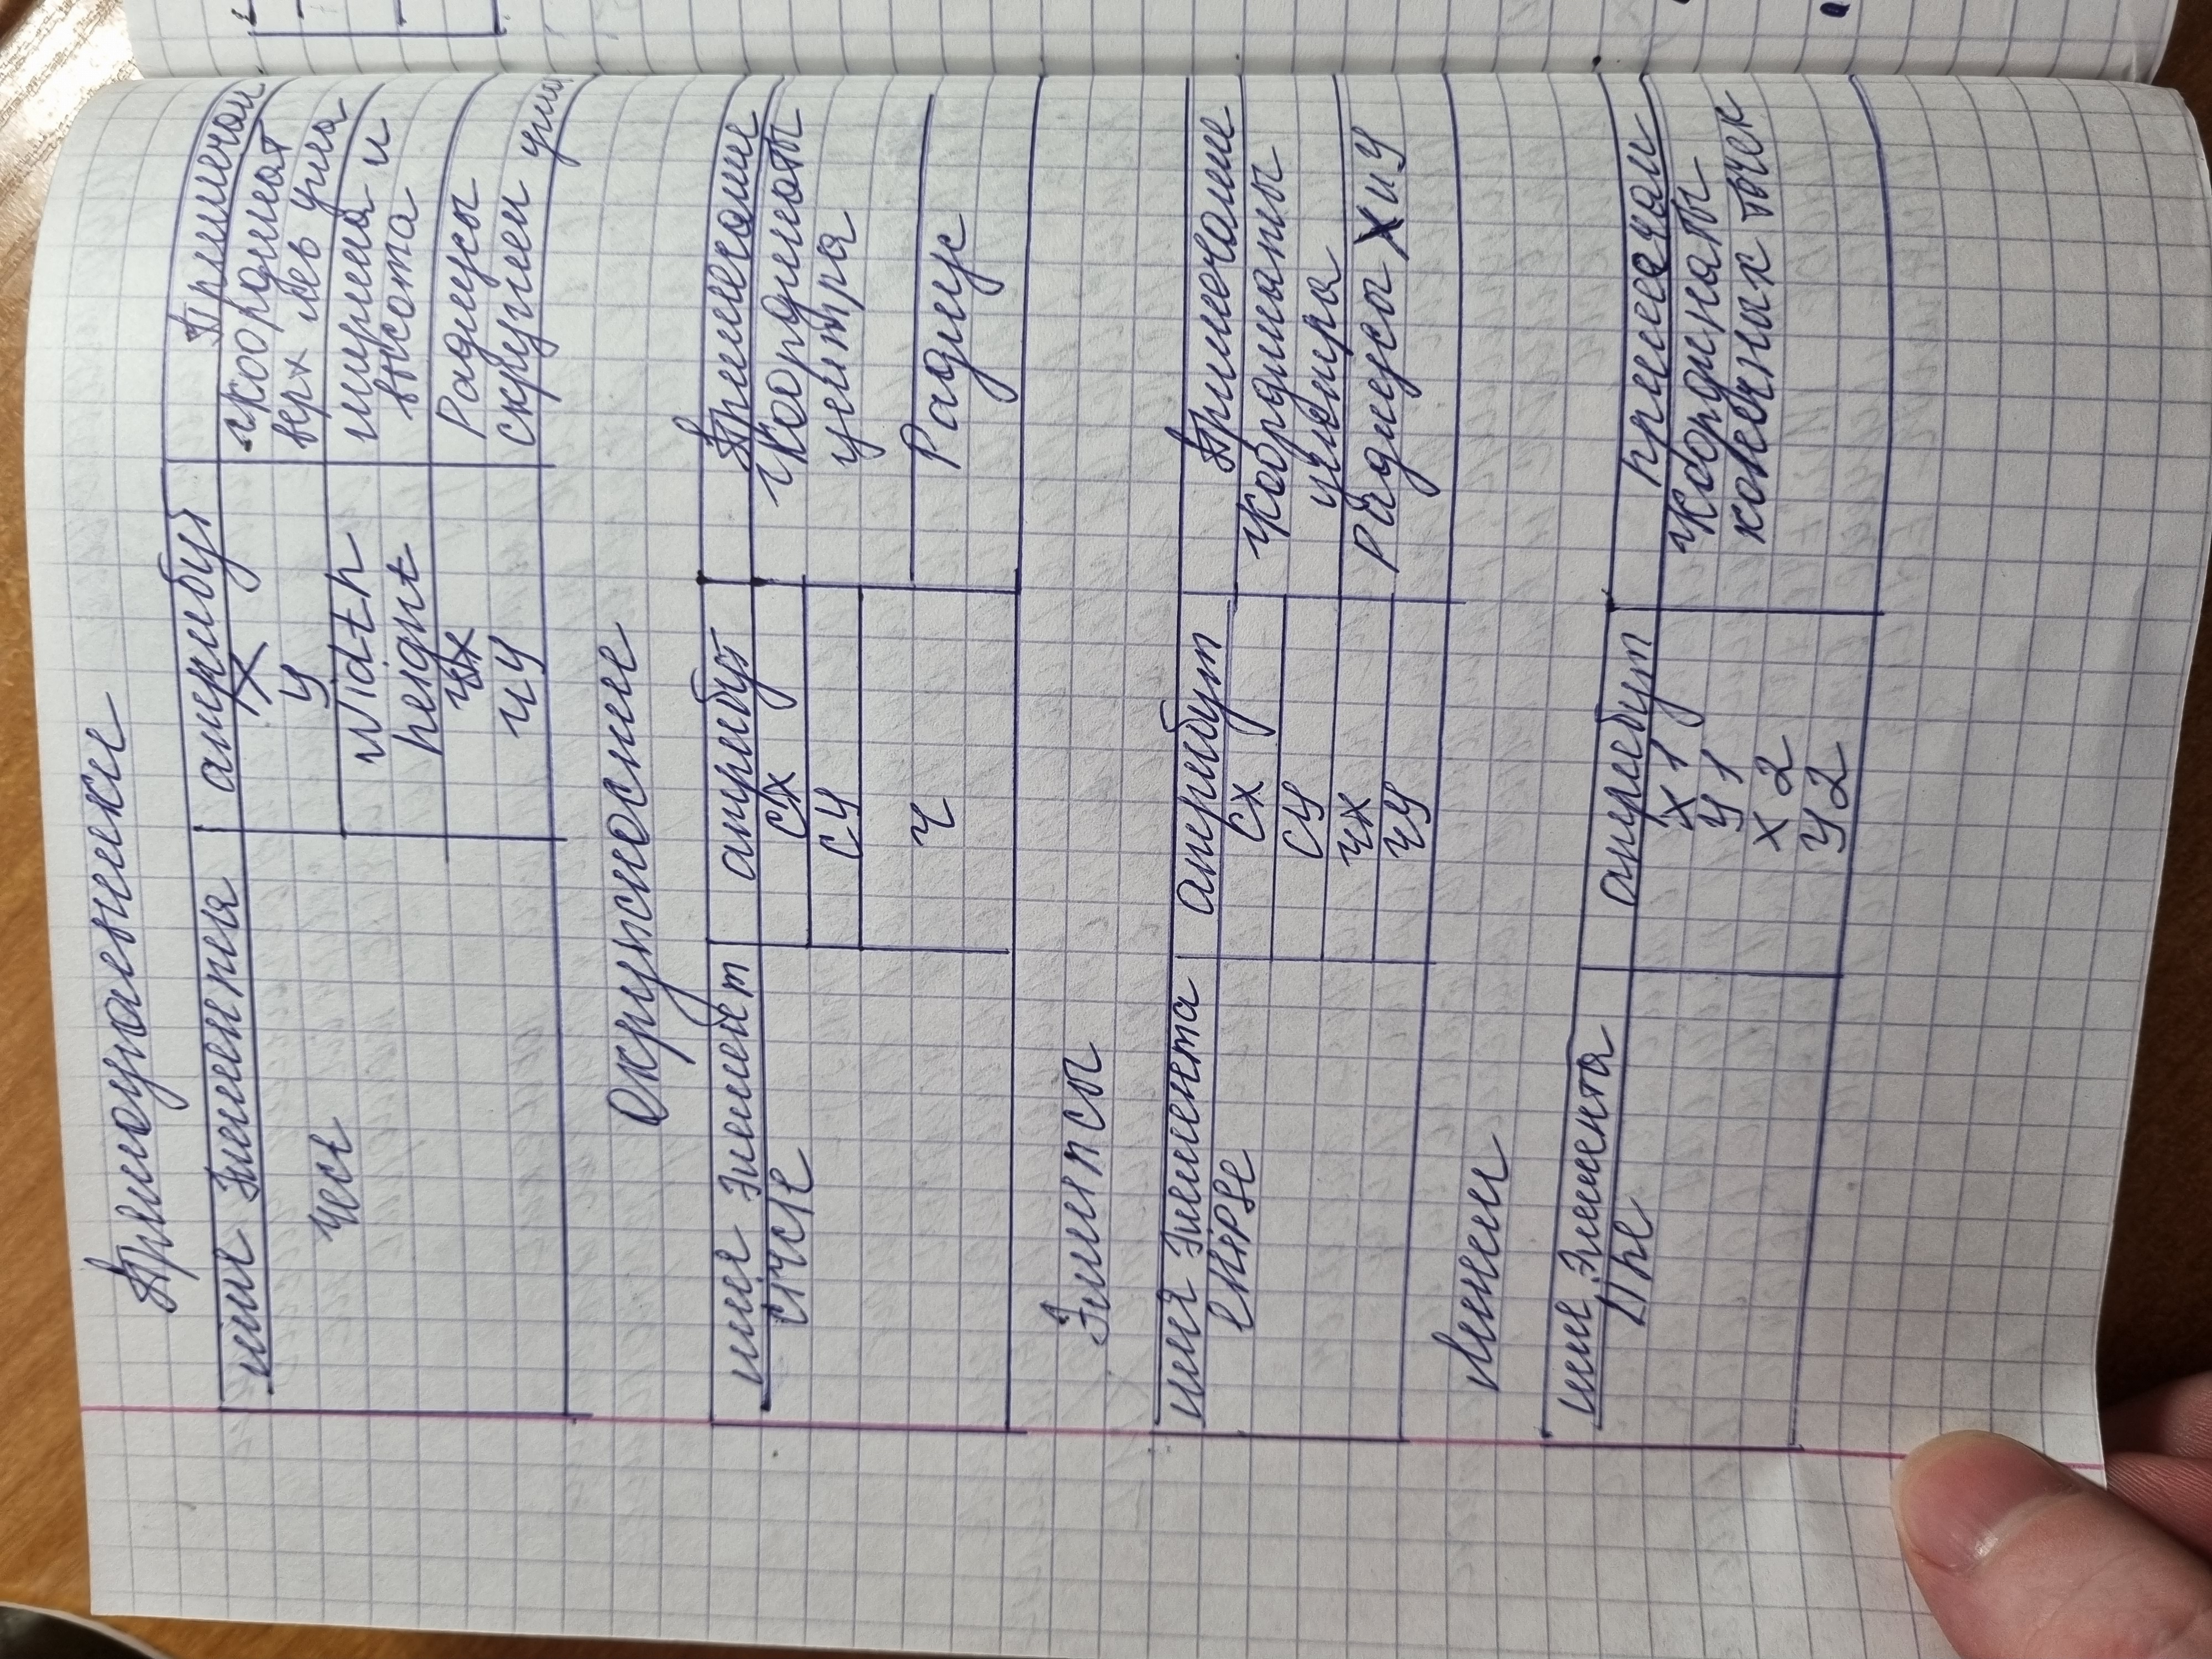 Прямоугольники
имя элемента атрибут Примечан
x Координат
y верх лев угла
rect
width ширина и
height высота
rx Радиусы
ry скруглен угла
Окружности
имя элемент атрибут Примечание
circle cx Координаты
cy центра
r Радиус
Элипсы
имя элемента атрибут Примечание
ellipse cx Координаты
cy центра
rx Радиусы X и Y
ry
Линии
имя элемента атрибут примечан
line x1 Координаты
y1 конечных точек
x2
y2